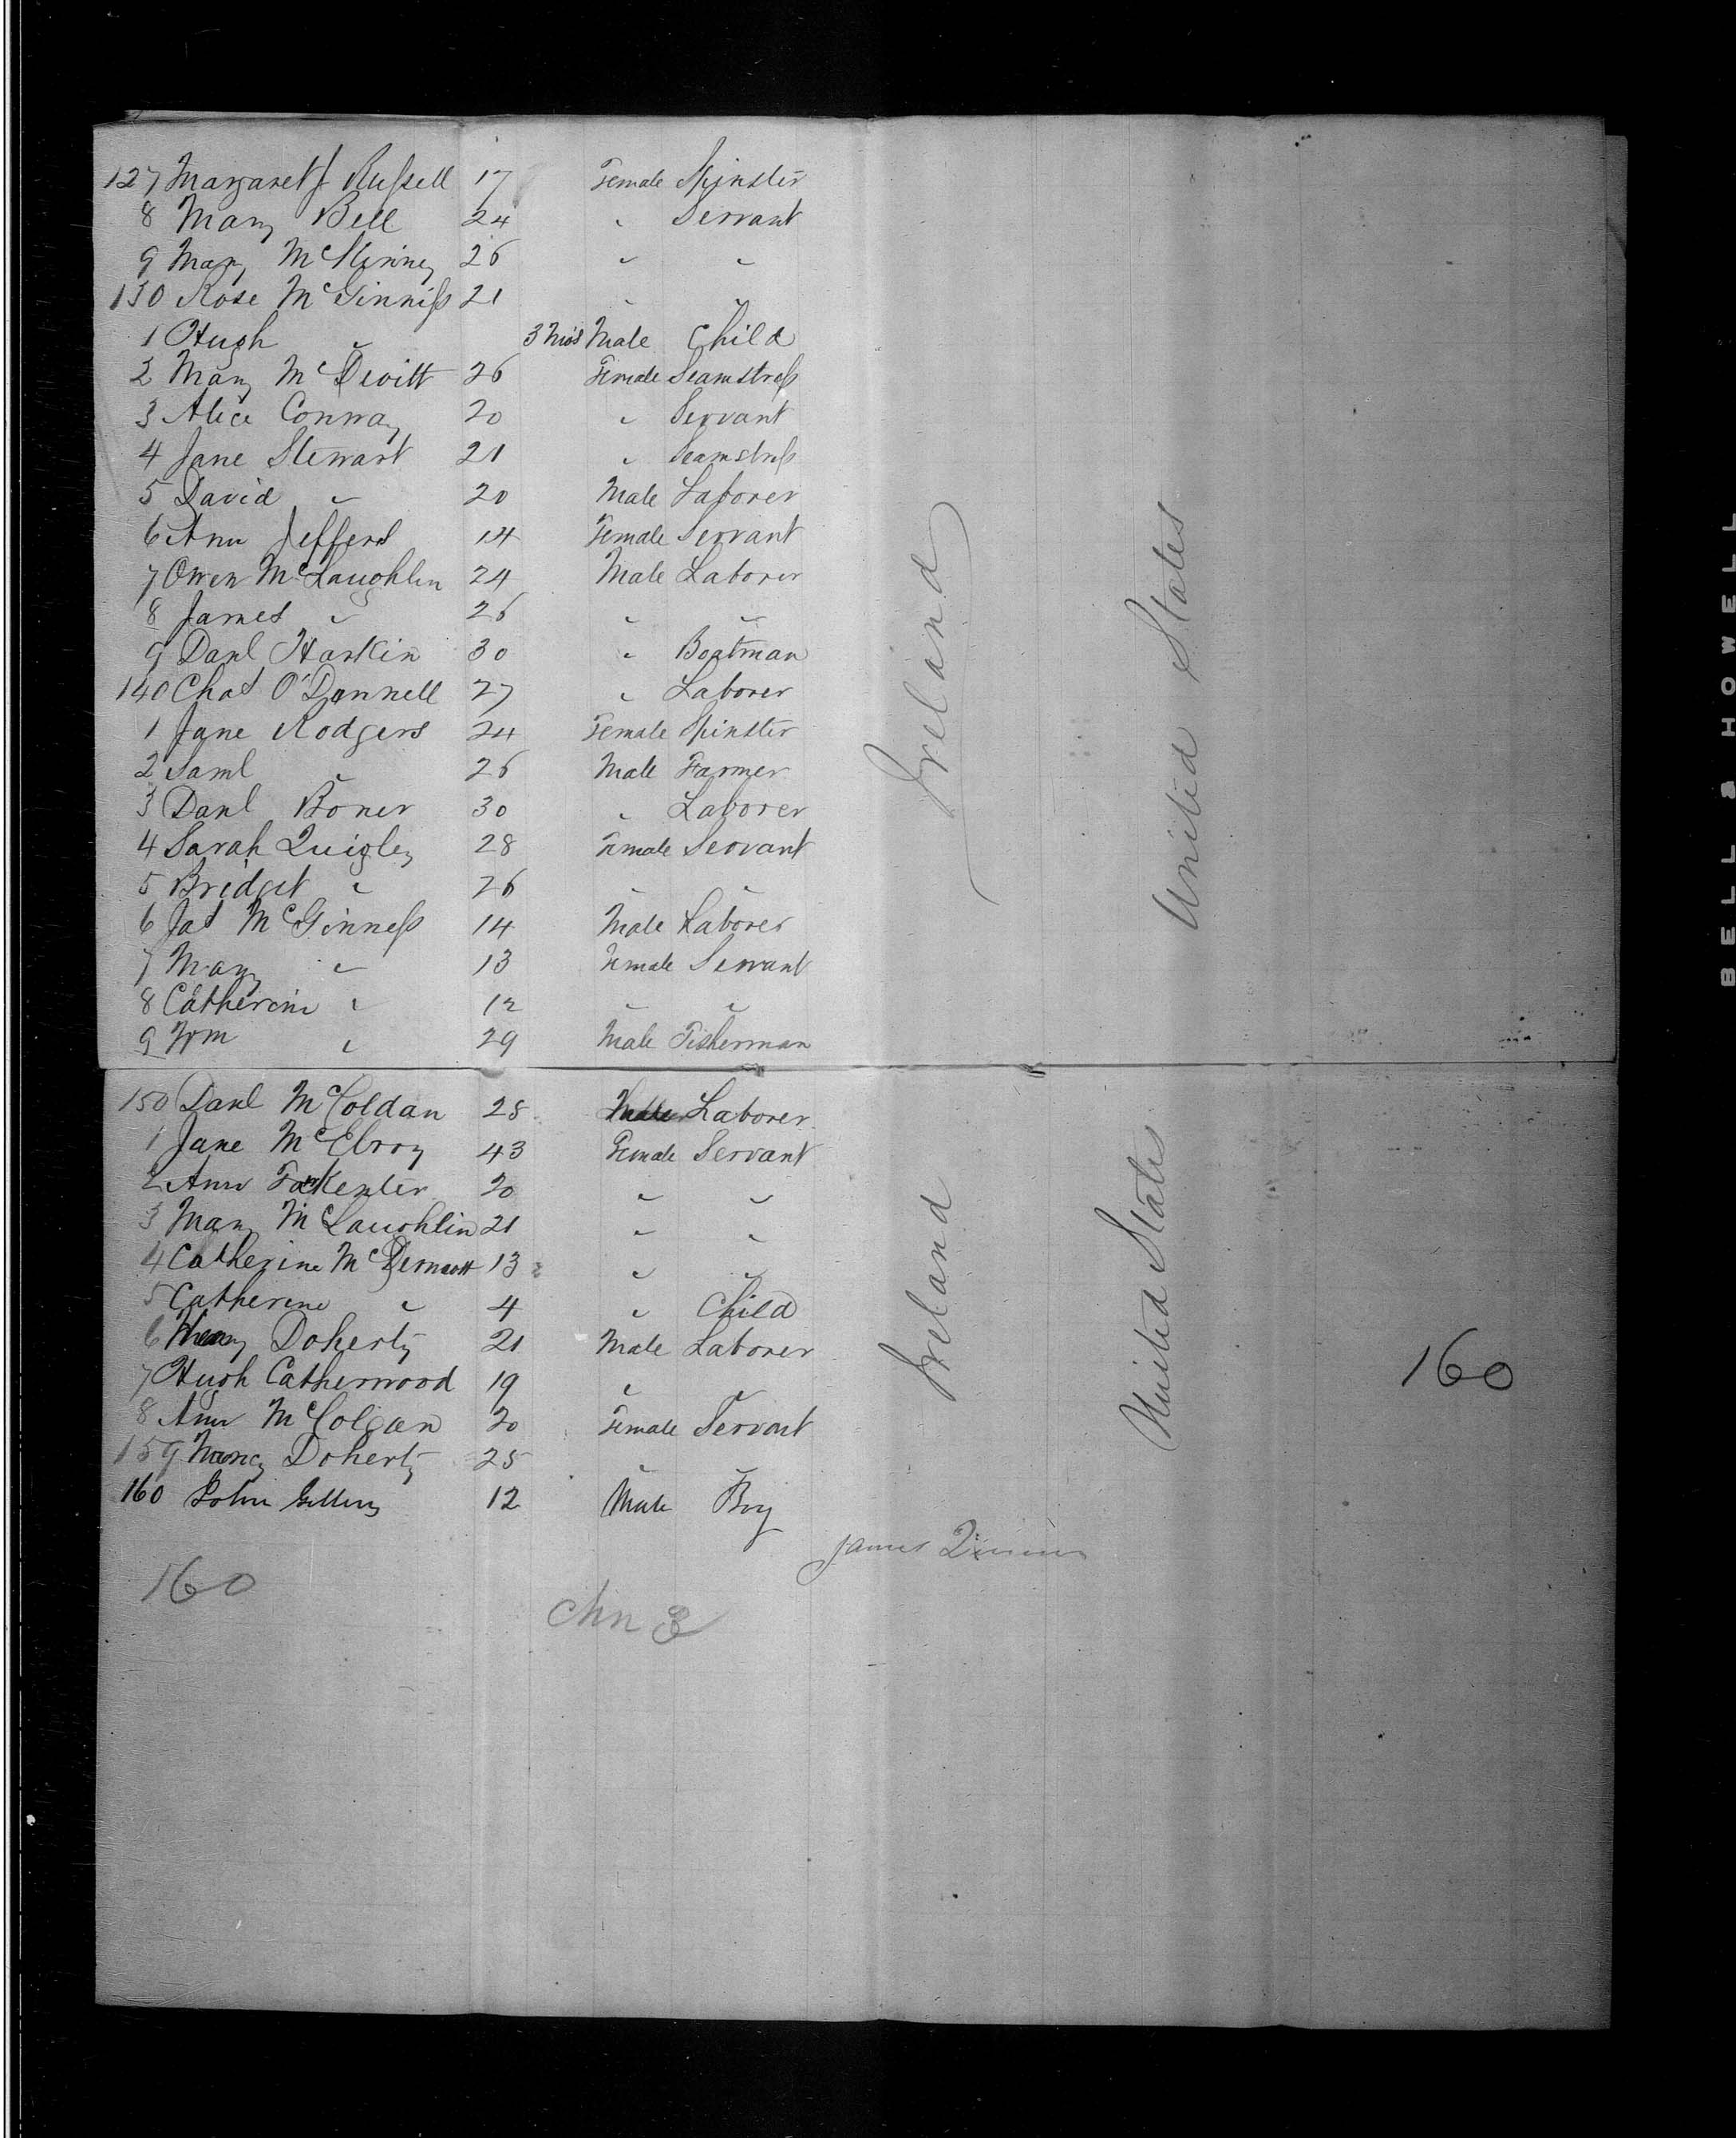 127 Margaret J Russell 17 Female Spinster
8 Mary Bell 24 " Servant
9 Mary McKinney 26 " "
130 Rose McGinniss 21 " "
1 Hugh " 3 Mos Male Child
2 Mary McDevitt 26 Female Seamstress
3 Alice Conway 20 " Servant
4 Jane Stewart 21 " Seamstress
5 David " 20 Male Laborer
6 Ann Jeffers 14 Female Servant
7 Owen McLaughlin 24 Male Laborer
8 James " 26 " "
9 Danl Harkin 30 " Boatman
140 Chas O'Donnell 27 " Laborer
1 Jane Rodgers 24 Female Spinster
2 Saml " 26 Male Farmer
3 Danl Boner 30 " Laborer
4 Sarah Quigley 28 Female Servant
5 Bridget " 26 " "
6 Jas McGinness 14 Male Laborer
7 Mary " 13 Female Servant
8 Catherine " 12 " "
9 Wm " 29 Male Fisherman
Ireland
United States
150 Danl McColdan 28 Male Laborer
1 Jane McElroy 43 Female Servant
2 Ann 20 " "
3 Mary McLaughlin 21 " "
4 Catherine McDermott 13 " "
5 Catherine " 4 " Child
6 Doherty 21 Male Laborer
7 Hugh Catherwood 19 " "
8 Ann McColgan 20 Female Servant
159 Nancy Doherty 25 " "
160 John 12 Male Boy
Ireland
United States
160
James
160
BELL & HOWELL